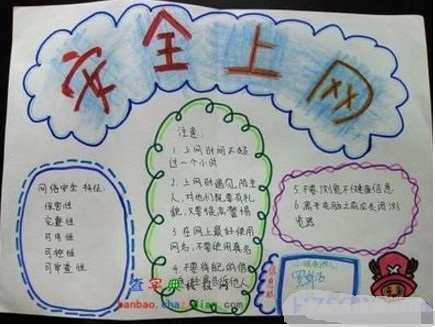 安全上网
网络安全 特征:
保密性
完整性
可用性
可控性
可审查性
注意:
1. 上网时间不超
过一个小时
2. 上网时遇见陌生
人,对他们既要有礼
貌,又要提高警惕
3. 在网上最好使用
网名,不要使用真名
4. 不要
他人
5. 不要浏览不健康信息
6. 离开电脑之后关闭浏
览器
查字典
chazidian.com